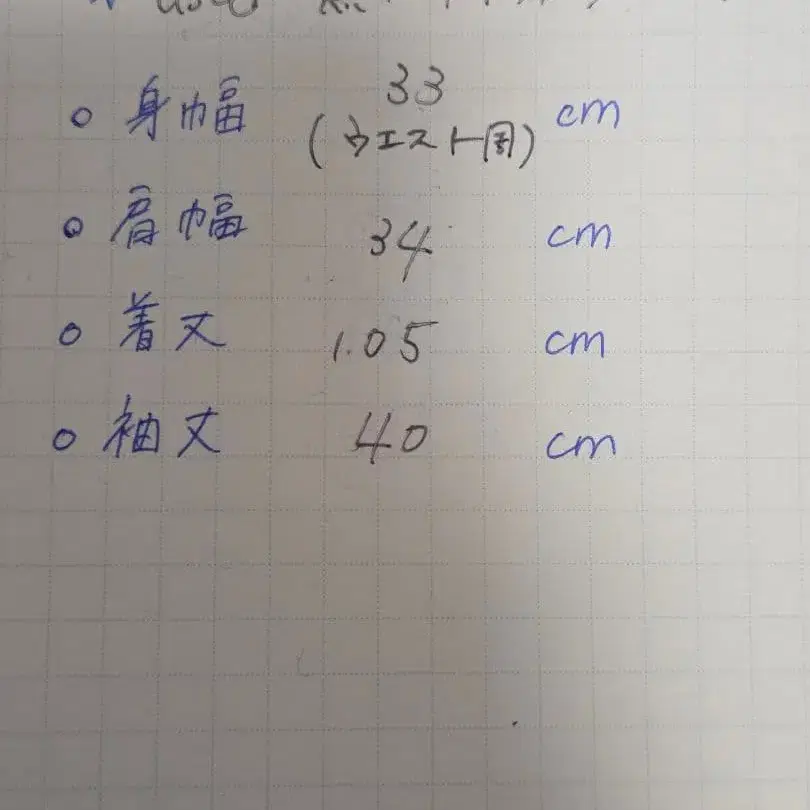 ○ 身幅 33 cm
(ウエスト周)
○ 肩幅 34 cm
○ 着丈 1.05 cm
○ 袖丈 40 cm